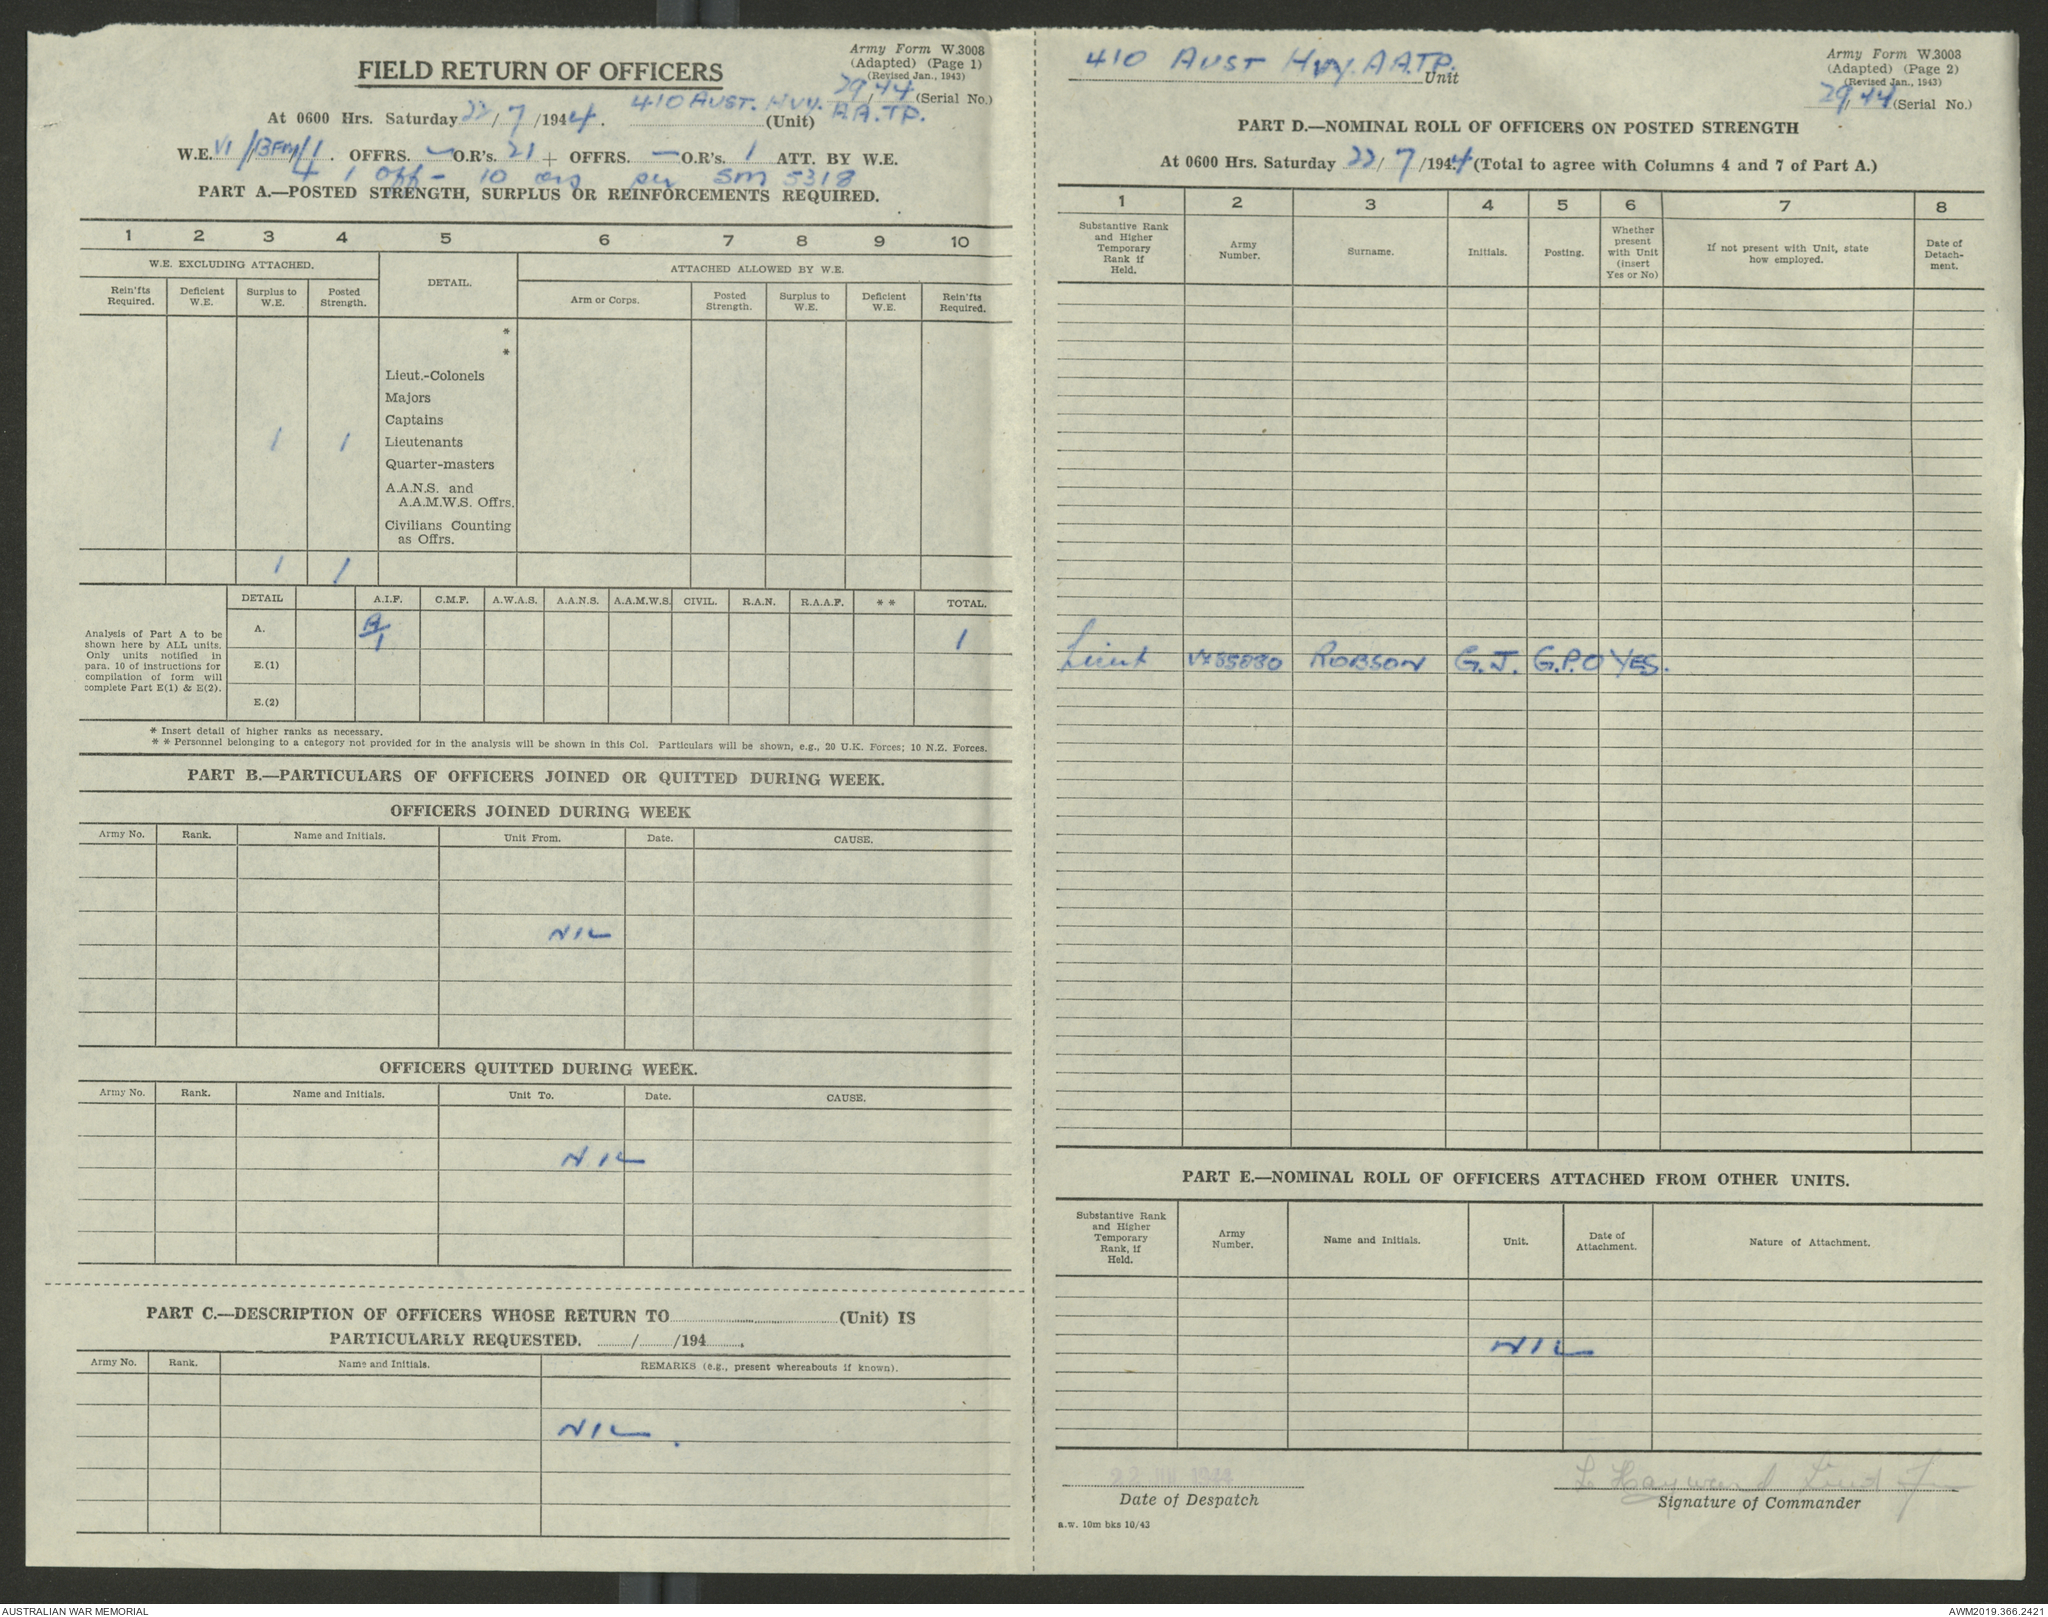 Army Form W.3008
(Adapted) (Page 1)
(Revised Jan., 1943)
29/44 (Serial No.)
FIELD RETURN OF OFFICERS
At 0600 Hrs. Saturday 22/7/1944. 410 AUST. HVY. A.A.TP. (Unit)
W.E. VI /13F /1. OFFRS. – O.R's. 21 + OFFRS. – O.R's. 1 ATT. BY W.E.
1 Off - 10 ors per SM 5318
PART A.—POSTED STRENGTH, SURPLUS OR REINFORCEMENTS REQUIRED.
1 2 3 4 5 6 7 8 9 10
W.E. EXCLUDING ATTACHED. DETAIL. ATTACHED ALLOWED BY W.E.
Rein'fts Required. Deficient W.E. Surplus to W.E. Posted Strength. Arm or Corps. Posted Strength. Surplus to W.E. Deficient W.E. Rein'fts Required.
*
*
Lieut.-Colonels
Majors
Captains
1 1 Lieutenants
Quarter-masters
A.A.N.S. and
A.A.M.W.S. Offrs.
Civilians Counting
as Offrs.
1 1
DETAIL A.I.F. C.M.F. A.W.A.S. A.A.N.S. A.A.M.W.S. CIVIL. R.A.N. R.A.A.F. * * TOTAL.
Analysis of Part A to be
shown here by ALL units.
Only units notified in
para. 10 of instructions for
compilation of form will
complete Part E(1) & E(2).
A. 1 1
E.(1)
E.(2)
* Insert detail of higher ranks as necessary.
* * Personnel belonging to a category not provided for in the analysis will be shown in this Col. Particulars will be shown, e.g., 20 U.K. Forces; 10 N.Z. Forces.
PART B.—PARTICULARS OF OFFICERS JOINED OR QUITTED DURING WEEK.
OFFICERS JOINED DURING WEEK
Army No. Rank. Name and Initials. Unit From. Date. CAUSE.
NIL
OFFICERS QUITTED DURING WEEK.
Army No. Rank. Name and Initials. Unit To. Date. CAUSE.
NIL
PART C.—DESCRIPTION OF OFFICERS WHOSE RETURN TO (Unit) IS
PARTICULARLY REQUESTED. / /194 .
Army No. Rank. Name and Initials. REMARKS (e.g., present whereabouts if known).
NIL.
410 AUST HVY. A.A.TP. Unit
Army Form W.3008
(Adapted) (Page 2)
(Revised Jan., 1943)
29/44 (Serial No.)
PART D.—NOMINAL ROLL OF OFFICERS ON POSTED STRENGTH
At 0600 Hrs. Saturday 22/7/1944 (Total to agree with Columns 4 and 7 of Part A.)
1 2 3 4 5 6 7 8
Substantive Rank and Higher Temporary Rank if Held. Army Number. Surname. Initials. Posting. Whether present with Unit (insert Yes or No) If not present with Unit, state how employed. Date of Detach-ment.
Lieut ROBSON G.J. G.P.O YES.
PART E.—NOMINAL ROLL OF OFFICERS ATTACHED FROM OTHER UNITS.
Substantive Rank and Higher Temporary Rank, if Held. Army Number. Name and Initials. Unit. Date of Attachment. Nature of Attachment.
NIL
22 JUL 1944
Date of Despatch
L Hayward Lieut
Signature of Commander
a.w. 10m bks 10/43
AUSTRALIAN WAR MEMORIAL
AWM2019.366.2421